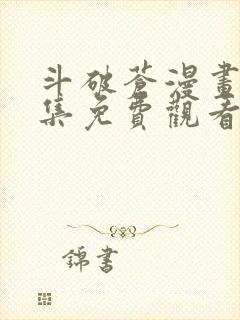 斗破蒼漫畫
集免費觀看
錦書